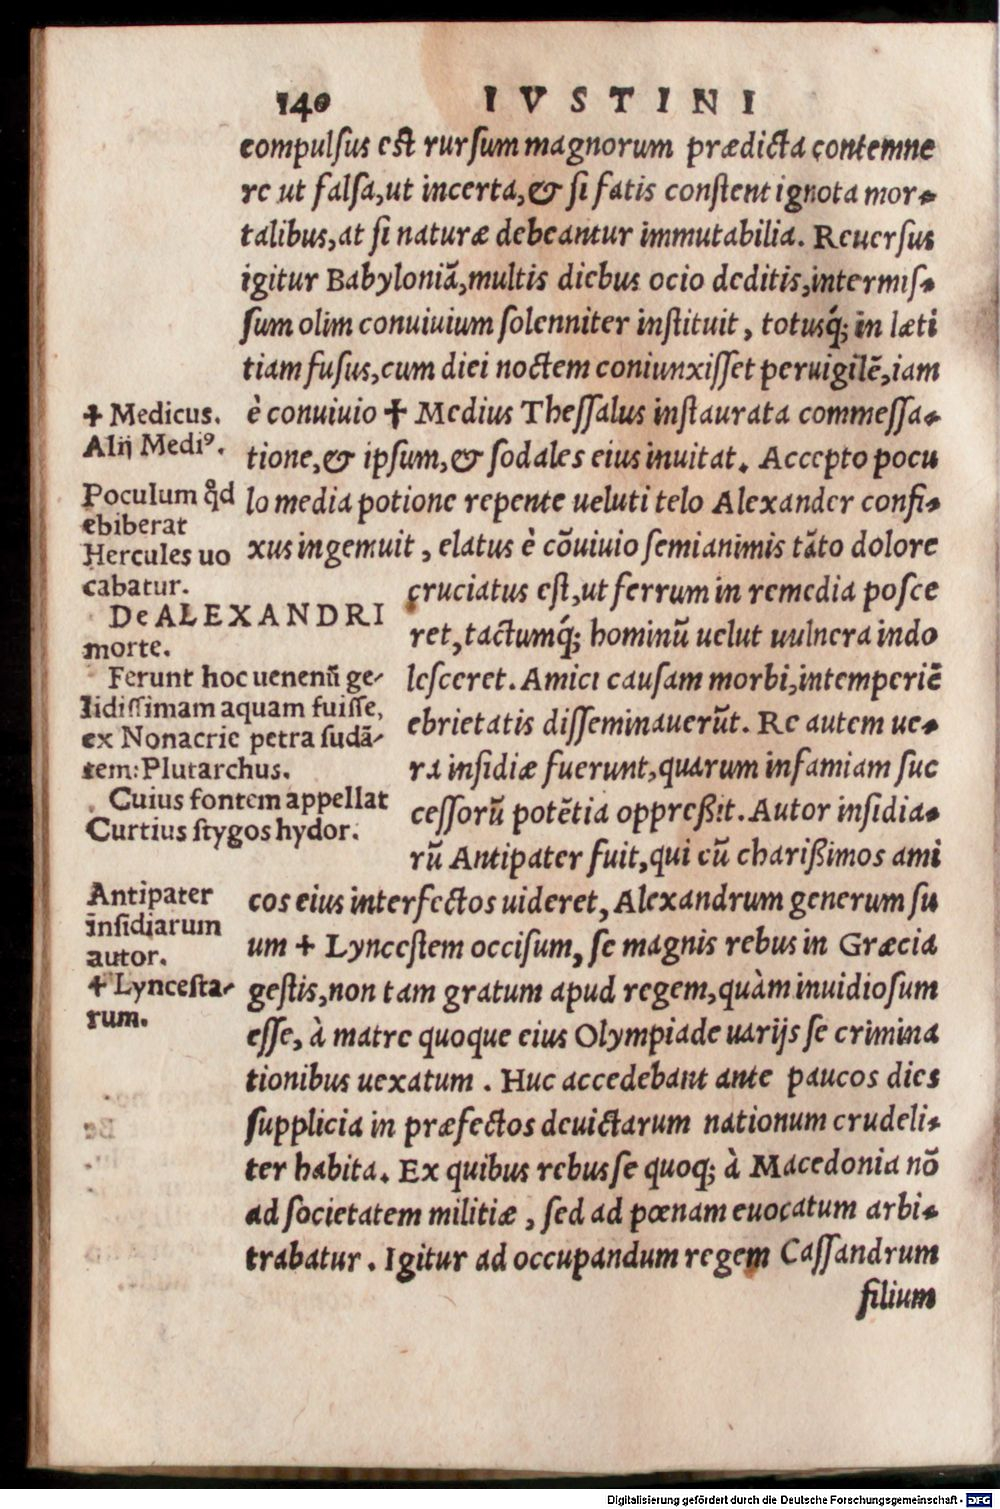 140 IVSTINI
compulsus est rursum magnorum prædicta contemne
re ut falsa, ut incerta, & si fatis constent ignota mor-
talibus, at si naturæ debeantur immutabilia. Reuersus
igitur Babyloniã, multis diebus ocio deditis, intermis-
sum olim conuiuium solenniter instituit, totusq́; in læti
tiam fusus, cum diei noctem coniunxisset peruigilẽ, iam
è conuiuio ✝ Medius Thessalus instaurata commessa-
tione, & ipsum, & sodales eius inuitat. Accepto pocu
lo media potione repente ueluti telo Alexander confi-
xus ingemuit, elatus è cõuiuio semianimis tãto dolore
cruciatus est, ut ferrum in remedia posce
ret, tactumq́; hominũ uelut uulnera indo
lesceret. Amici causam morbi, intemperiẽ
ebrietatis disseminauerũt. Re autem ue-
ra insidiæ fuerunt, quarum infamiam suc
cessorũ potẽtia oppreßit. Autor insidia-
rũ Antipater fuit, qui cũ charißimos ami
cos eius interfectos uideret, Alexandrum generum su
um ✝ Lyncestem occisum, se magnis rebus in Græcia
gestis, non tam gratum apud regem, quàm inuidiosum
esse, à matre quoque eius Olympiade uarijs se crimina
tionibus uexatum. Huc accedebant ante paucos dies
supplicia in præfectos deuictarum nationum crudeli-
ter habita. Ex quibus rebus se quoq; à Macedonia nõ
ad societatem militiæ, sed ad pœnam euocatum arbi-
trabatur. Igitur ad occupandum regem Cassandrum
filium
✝ Medicus.
Alij Mediꝰ.
Poculum qd̃
ebiberat
Hercules uo
cabatur.
De ALEXANDRI
morte.
Ferunt hoc uenenũ ge-
lidissimam aquam fuisse,
ex Nonacrie petra sudã-
tem: Plutarchus.
Cuius fontem appellat
Curtius stygos hydor.
Antipater
insidiarum
autor.
✝ Lyncesta-
rum.
Digitalisierung gefördert durch die Deutsche Forschungsgemeinschaft - DFG